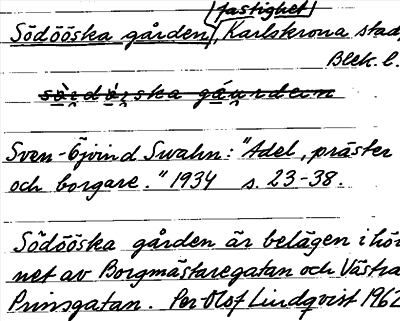 fastighet
Södööska gården, Karlskrona stad,
Blek. l.
Sven-Öjvind Swahn: "Adel, präster
och borgare." 1934 s. 23-38.
Södööska gården är belägen i hör
net av Borgmästaregatan och Västra
Prinsgatan. Per Olof Lindqvist 1962